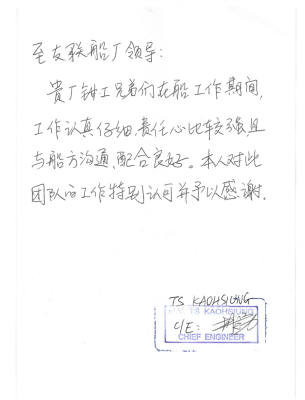 至友联船厂领导:
贵厂钳工兄弟们在船工作期间,
工作认真仔细,责任心比较强,且
与船方沟通,配合良好。本人对此
团队的工作特别认可并予以感谢.
TS KAOHSIUNG
M.V. TS KAOHSIUNG
C/E:
CHIEF ENGINEER